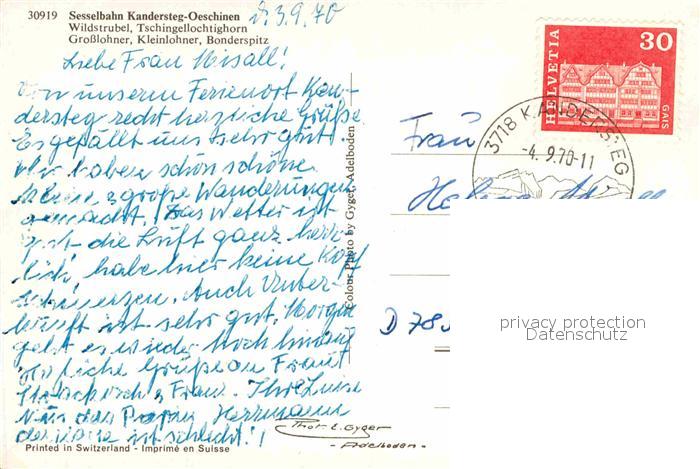 30919 Sesselbahn Kandersteg-Oeschinen
Wildstrubel, Tschingellochtighorn
Großlohner, Kleinlohner, Bonderspitz
d. 3.9.70
Liebe Frau Misall!
Von unserm Ferienort Kan-
dersteg recht herzliche Grüße
Es gefällt uns sehr gut!
Wir haben schon schöne
kleine u. große Wanderungen
gemacht. Das Wetter ist
gut die Luft ganz herr-
lich, habe hier keine Kopf
schmerzen. Auch Unter-
kunft ist sehr gut. Morgen
geht es wieder hoch hinauf
Herzliche Grüße an Frau
u. Frau. Ihre Luise
Nur das Herrmann
ist schlecht!
Printed in Switzerland - Imprimé en Suisse
Colour Photo by Gyger, Adelboden
Thor. E. Gyger
- Adelboden -
HELVETIA
30
GAIS
3718 KANDERSTEG
-4.9.70-11
Frau
D 78
privacy protection
Datenschutz